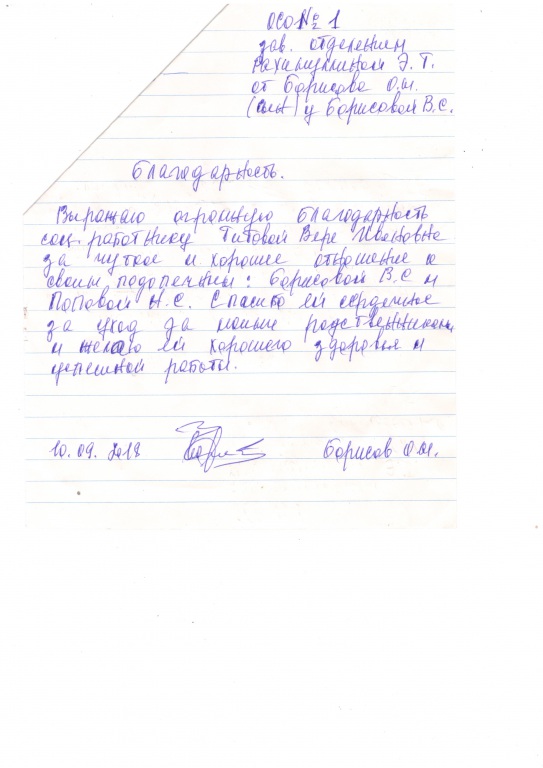 ОСО № 1
зав. отделением
Рахимуллиной Э. Т.
от Борисова О.И.
(сын) у Борисовой В.С.
Благодарность.
Выражаю огромную благодарность
соц. работнику Титовой Вере Ивановне
за чуткое и хорошее отношение к
своим подопечным: Борисовой В.С и
Поповой Н.С. Спасибо ей сердечное
за уход за моими родственниками
и желаю ей хорошего здоровья и
успешной работы.
10.09.2018 Борисов О.И.